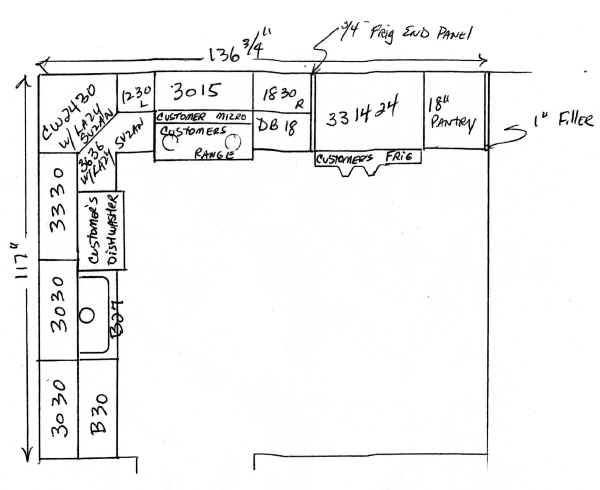 136 3/4"
3/4" FRIG END PANEL
CW2430
W/ LAZY
SUZAN
1230
L
3015
1830
R
331424
18"
PANTRY
1" FILLER
CUSTOMER MICRO
CUSTOMERS
RANGE
DB 18
CUSTOMER'S FRIG
3636
W/LAZY
SUZAN
3330
CUSTOMER'S
DISHWASHER
117"
3030
B27
3030
B30